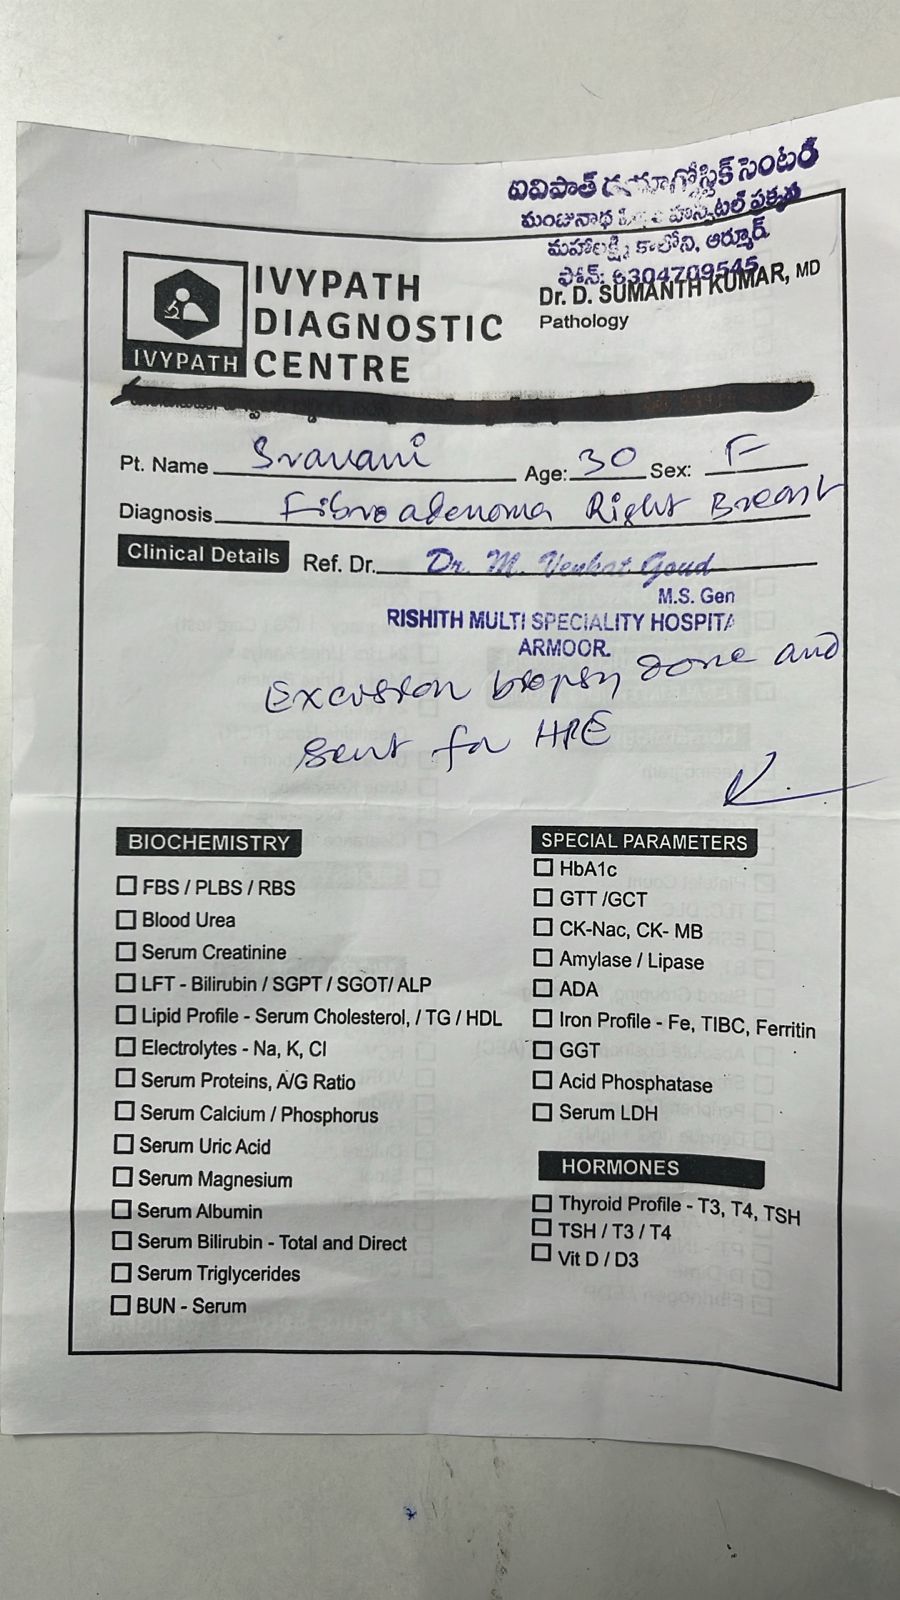 ఐవిపాత్ డయాగ్నోస్టిక్ సెంటర్
మంజునాథ హాస్పిటల్ ప్రక్కన
మహాలక్ష్మి కాలోని, ఆర్మూర్
ఫోన్: 6304709545
IVYPATH
DIAGNOSTIC
CENTRE
IVYPATH
Dr. D. SUMANTH KUMAR, MD
Pathology
Pt. Name Sravani Age: 30 Sex: F
Diagnosis Fibroadenoma Right Breast
Clinical Details Ref. Dr. Dr. M. Venkat Goud
M.S. Gen
RISHITH MULTI SPECIALITY HOSPITA
ARMOOR.
Excusion biopsy done and
sent for HPE
BIOCHEMISTRY
FBS / PLBS / RBS
Blood Urea
Serum Creatinine
LFT - Bilirubin / SGPT / SGOT/ ALP
Lipid Profile - Serum Cholesterol, / TG / HDL
Electrolytes - Na, K, Cl
Serum Proteins, A/G Ratio
Serum Calcium / Phosphorus
Serum Uric Acid
Serum Magnesium
Serum Albumin
Serum Bilirubin - Total and Direct
Serum Triglycerides
BUN - Serum
SPECIAL PARAMETERS
HbA1c
GTT /GCT
CK-Nac, CK- MB
Amylase / Lipase
ADA
Iron Profile - Fe, TIBC, Ferritin
GGT
Acid Phosphatase
Serum LDH
HORMONES
Thyroid Profile - T3, T4, TSH
TSH / T3 / T4
Vit D / D3